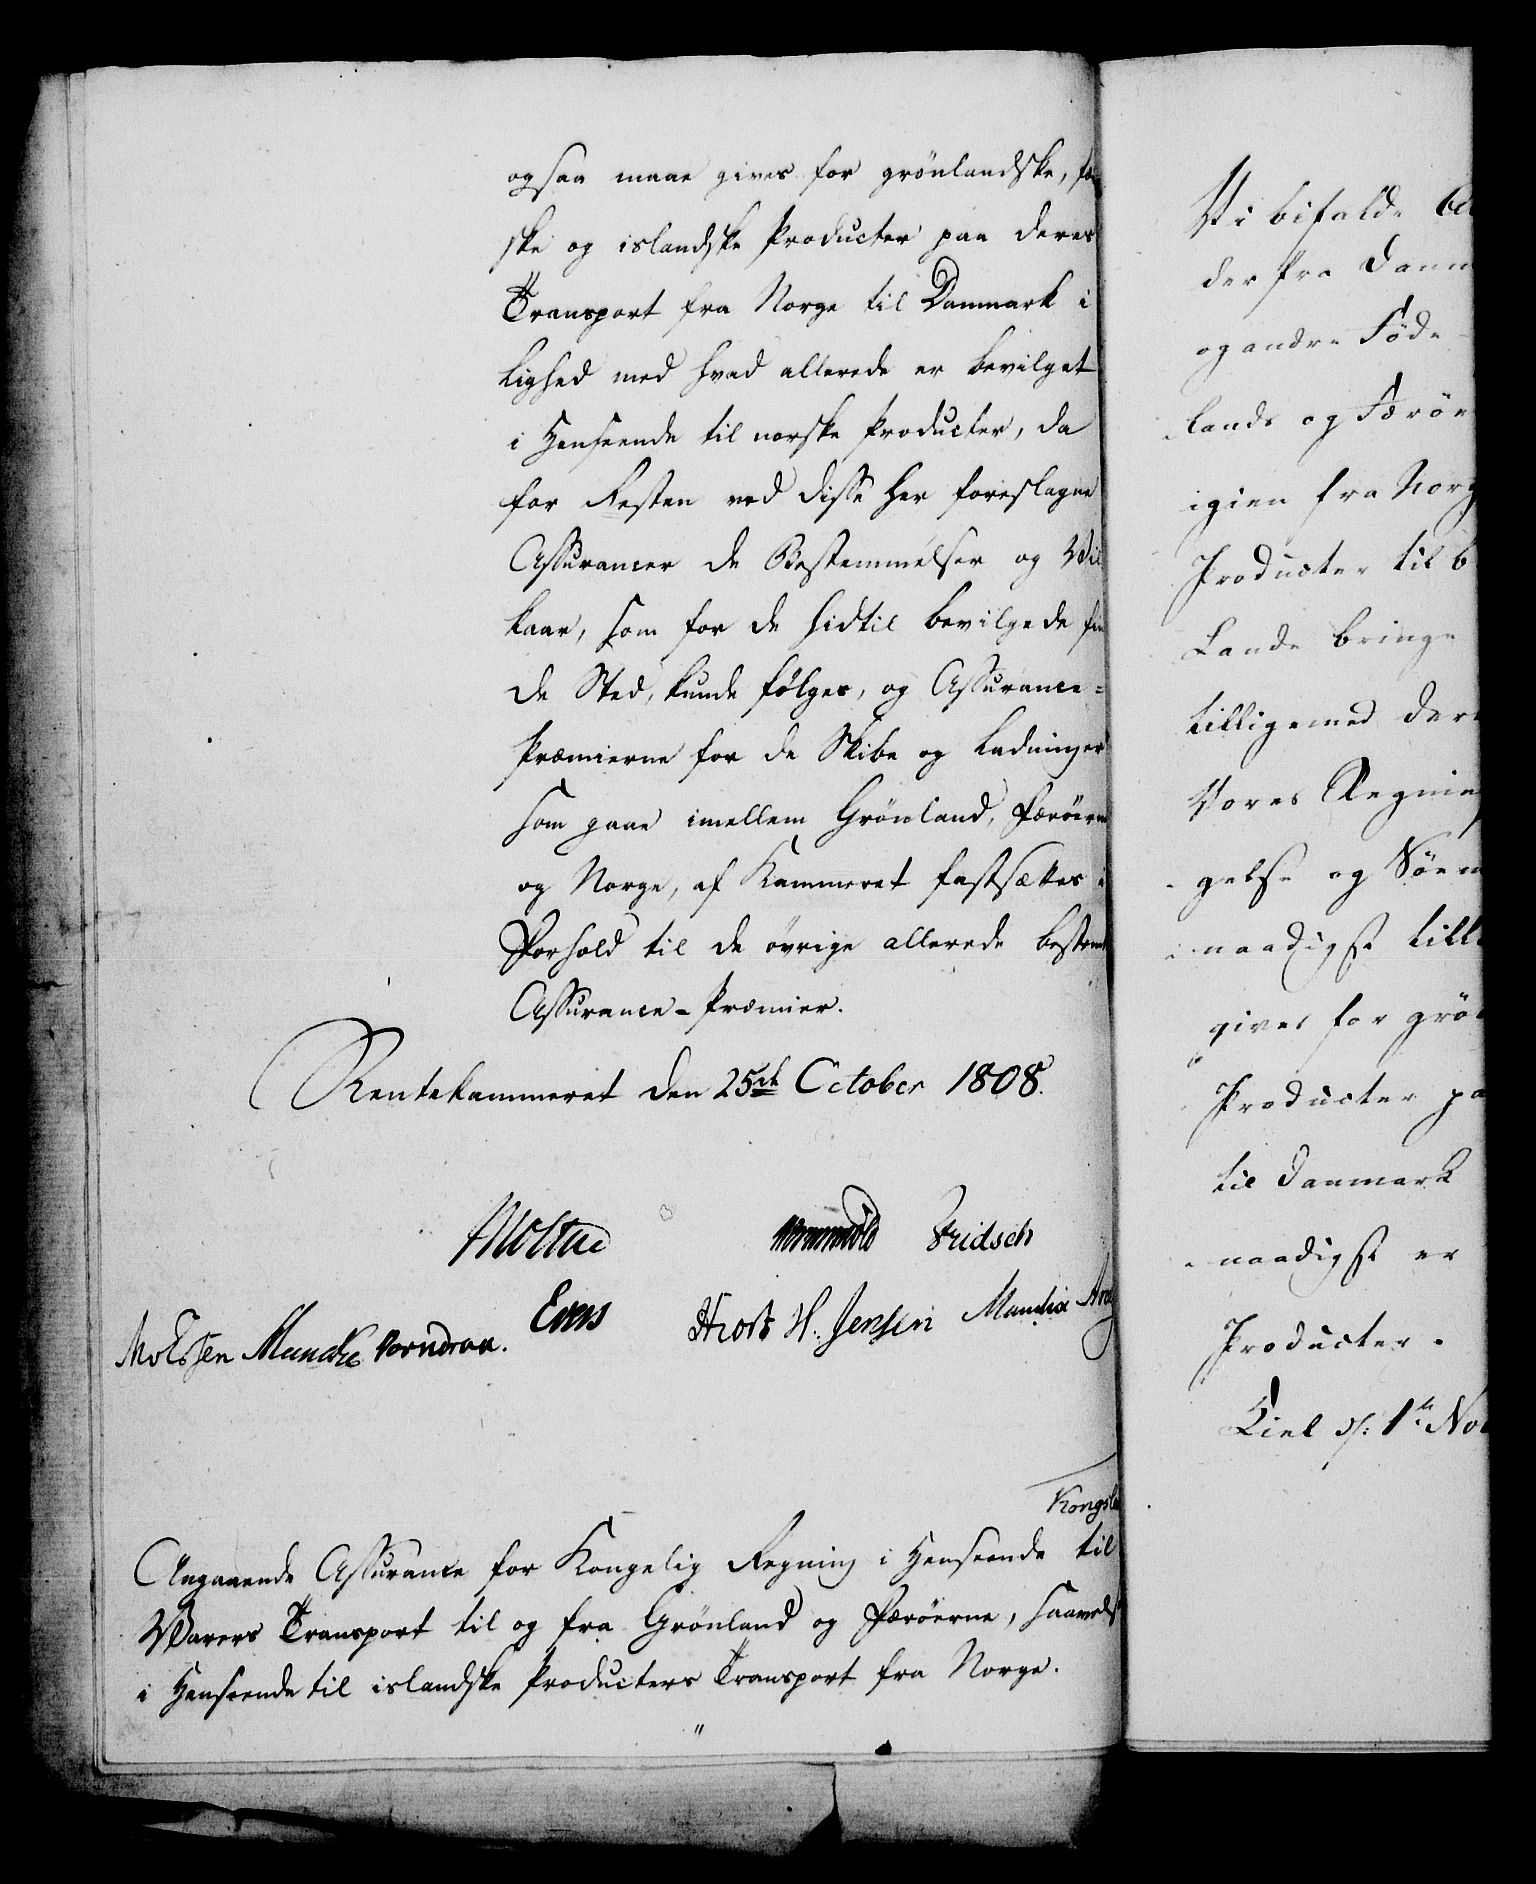 ogsaa maae gives for grönlandske, fær
ske og islandske Producter paa deres
Transport fra Norge til Danmark i
Lighed med hvad allerede er bevilget
i Henseende til norske Producter, da
for Resten ved disse her foreslagne
Assurancer de Bestemmelser og Vil
kaar, som for de hidtil bevilgede fin
de Sted, kunde følges, og Assurance-
Præmierne for de Skibe og Ladninger
som gaae imellem Grönland, Færöerne
og Norge, af Kammeret fastsættes i
Forhold til de övrige allerede bestemte
Assurance-Præmier.
Rentekammeret den 25de October 1808.
Moltke Wormskiold Fridsch
Evers Hiort H: Jensen Mandix
Moldsen Muncke Vorndran.
Angaaende Assurance for Kongelig Regning i Henseende til
Varers Transport til og fra Grönland og Færöerne, saavelsom
i Henseende til islandske Producters Transport fra Norge.
Vi bifalde
der fra Danm
og andre Føde
lands og Færöe
igien fra Norg
Producter til b
Lande bringe
tilligemed der
Vores Regning
gelse og Söe
naadigst till
gives for grö
Producter pa
til Danmark
naadigst er
Producter.
Kiel d: 1te Nov